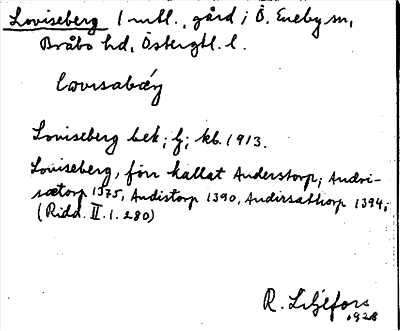 Loviseberg 1 mtl., gård i Ö. Eneby sn,
Bråbo hd, Östergtl. l.
Loviseberg bek; ; kb. 1913.
Loviseberg, förr kallat Anderstorp; Andvi-
sætorp 1375, Andistorp 1390, Andirsathorp 1394;
(Ridd. II. 1. 280)
R. Liljefors
1928